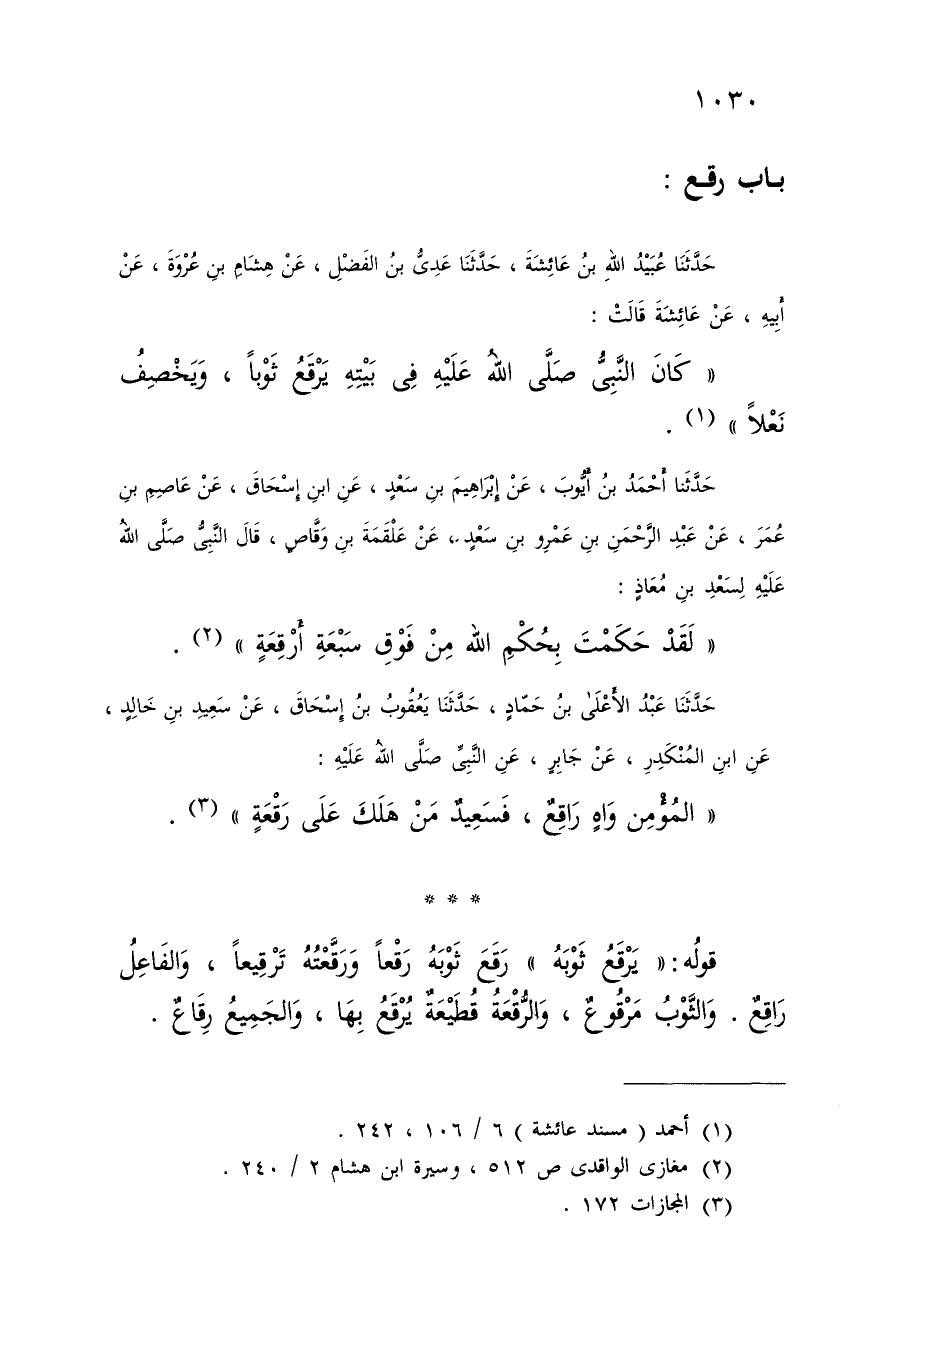 ١٠٣٠
باب رقع :
حَدَّثَنَا عُبَيْدُ اللهِ بنُ عَائِشَةَ ، حَدَّثَنَا عَدِىُّ بنُ الفَضْلِ ، عَنْ هِشَامِ بنِ عُرْوَةَ ، عَنْ
أَبِيهِ ، عَنْ عَائِشَةَ قَالَتْ :
« كَانَ النَّبِىُّ صَلَّى اللهُ عَلَيْهِ فِى بَيْتِهِ يَرْقَعُ ثَوْباً ، وَيَخْصِفُ
نَعْلاً » (١) .
حَدَّثَنا أَحْمَدُ بنُ أَيُّوبَ ، عَنْ إِبْرَاهِيمَ بنِ سَعْدٍ ، عَنِ ابنِ إِسْحَاقَ ، عَنْ عَاصِمِ بنِ
عُمَرَ ، عَنْ عَبْدِ الرَّحْمَنِ بنِ عَمْرِو بنِ سَعْدٍ ، عَنْ عَلْقَمَةَ بنِ وَقَّاصٍ ، قَالَ النَّبِىُّ صَلَّى اللهُ
عَلَيْهِ لِسَعْدِ بنِ مُعَاذٍ :
« لَقَدْ حَكَمْتَ بِحُكْمِ اللهِ مِنْ فَوْقِ سَبْعَةِ أَرْقِعَةٍ » (٢) .
حَدَّثَنَا عَبْدُ الأَعْلَىٰ بنُ حَمّادٍ ، حَدَّثَنَا يَعْقُوبُ بنُ إِسْحَاقَ ، عَنْ سَعِيدِ بنِ خَالِدٍ ،
عَنِ ابنِ المُنْكَدِرِ ، عَنْ جَابِرٍ ، عَنِ النَّبِىِّ صَلَّى اللهُ عَلَيْهِ :
« المُؤْمِن وَاهٍ رَاقِعٌ ، فَسَعِيدٌ مَنْ هَلَكَ عَلَى رَقْعَةٍ » (٣) .
* * *
قولُه : « يَرْقَعُ ثَوْبَهُ » رَقَعَ ثَوْبَهُ رَقْعاً وَرَقَّعْتُهُ تَرْقِيعاً ، وَالفَاعِلُ
رَاقِعٌ . وَالثَّوْبُ مَرْقُوعٌ ، وَالرُّقْعَةُ قُطَيْعَةٌ يُرْقَعُ بِهَا ، وَالجَمِيعُ رِقَاعٌ .
(١) أحمد ( مسند عائشة ) ٦ / ١٠٦ ، ٢٤٢ .
(٢) مغازى الواقدى ص ٥١٢ ، وسيرة ابن هشام ٢ / ٢٤٠ .
(٣) المجازات ١٧٢ .